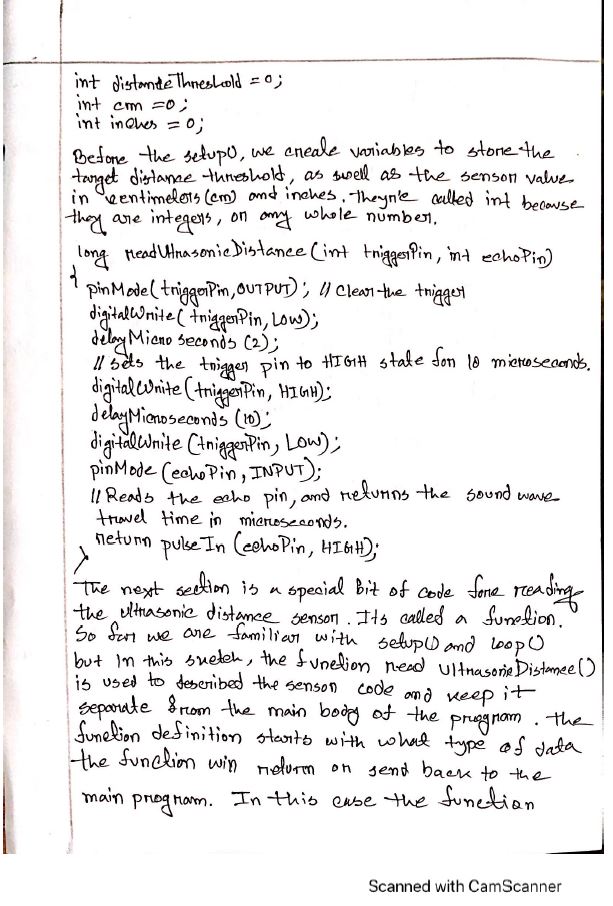 int distanceThreshold = 0;
int cm = 0;
int inches = 0;
Before the setup(), we create variables to store the
target distance threshold, as well as the sensor value
in centimeters (cm) and inches. They're called int because
they are integers, or any whole number.
long readUltrasonicDistance (int triggerPin, int echoPin)
{
pinMode( triggerPin, OUTPUT); // Clear the trigger
digitalWrite( triggerPin, Low);
delay Micro seconds (2);
// sets the trigger pin to HIGH state for 10 microseconds.
digitalWrite (triggerPin, HIGH);
delayMicroseconds (10);
digitalWrite (triggerPin, Low);
pinMode (echoPin, INPUT);
// Reads the echo pin, and returns the sound wave
travel time in microseconds.
return pulseIn (echoPin, HIGH);
}
The next section is a special Bit of code fore reading
the ultrasonic distance sensor. Its called a function.
So far we are familiar with setup() and loop()
but In this sketch, the function read UltrasonicDistance()
is used to described the sensor code and keep it
separate from the main body of the program. the
function definition starts with what type of data
the function win return or send back to the
main program. In this case the function
Scanned with CamScanner